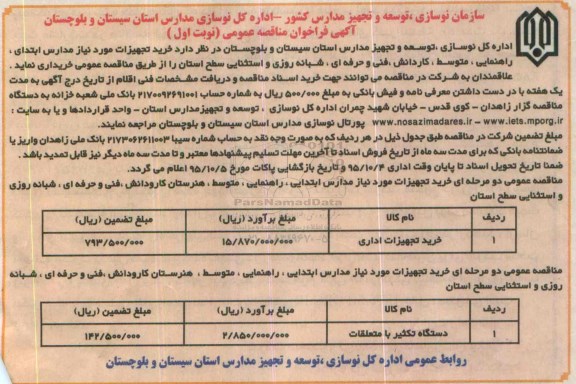 سازمان نوسازی ،توسعه و تجهیز مدارس کشور –اداره کل نوسازی مدارس استان سیستان و بلوچستان
آگهی فراخوان مناقصه عمومی (نوبت اول )
اداره کل نوسازی ،توسعه و تجهیز مدارس استان سیستان و بلوچستان در نظر دارد خرید تجهیزات مورد نیاز مدارس ابتدایی ،
راهنمایی ، متوسط ، کاردانش ،فنی و حرفه ای ، شبانه روزی و استثنایی سطح استان را از طریق مناقصه عمومی خریداری نماید .
علاقمندان به شرکت در مناقصه می توانند جهت خرید اسناد مناقصه و دریافت مشخصات فنی اقلام از تاریخ درج آگهی به مدت
یک هفته با در دست داشتن معرفی نامه و فیش بانکی به مبلغ ۵۰۰/۰۰۰ ریال به شماره حساب ۲۱۷۰۰۹۲۶۹۱۰۰۱ بانک ملی شعبه خزانه به دستگاه
مناقصه گزار زاهدان – کوی قدس – خیابان شهید چمران اداره کل نوسازی ، توسعه و تجهیزمدارس استان – واحد قراردادها و یا به سایت :
www.iets.mporg.ir – www.nosazimadares.ir پورتال نوسازی مدارس استان سیستان و بلوچستان مراجعه نمایند.
مبلغ تضمین شرکت در مناقصه طبق جدول ذیل در هر ردیف که به صورت وجه نقد به حساب شماره سیبا ۲۱۷۳۰۶۲۶۱۱۰۰۳ بانک ملی زاهدان واریز یا
ضمانتنامه بانکی که برای مدت سه ماه از تاریخ فروش اسناد تا آخرین مهلت تسلیم پیشنهادها معتبر و تا مدت سه ماه دیگر نیز قابل تمدید باشد .
ضمنا تاریخ تحویل اسناد تا پایان وقت اداری ۹۵/۱۰/۴ و تاریخ بازگشایی پاکات مورخ ۹۵/۱۰/۵ اعلام می گردد.
مناقصه عمومی دو مرحله ای خرید تجهیزات مورد نیاز مدارس ابتدایی ، راهنمایی ، متوسط ، هنرستان کارودانش ،فنی و حرفه ای ، شبانه روزی
و استثنایی سطح استان
ردیف نام کالا مبلغ برآورد (ریال) مبلغ تضمین (ریال)
۱ خرید تجهیزات اداری ۱۵/۸۷۰/۰۰۰/۰۰۰ ۷۹۳/۵۰۰/۰۰۰
مناقصه عمومی دو مرحله ای خرید تجهیزات مورد نیاز مدارس ابتدایی ، راهنمایی ، متوسط ، هنرستان کارودانش ،فنی و حرفه ای ، شبانه
روزی و استثنایی سطح استان
ردیف نام کالا مبلغ برآورد (ریال) مبلغ تضمین (ریال)
۱ دستگاه تکثیر با متعلقات ۲/۸۵۰/۰۰۰/۰۰۰ ۱۴۲/۵۰۰/۰۰۰
روابط عمومی اداره کل نوسازی ،توسعه و تجهیز مدارس استان سیستان و بلوچستان
ParsNamadData